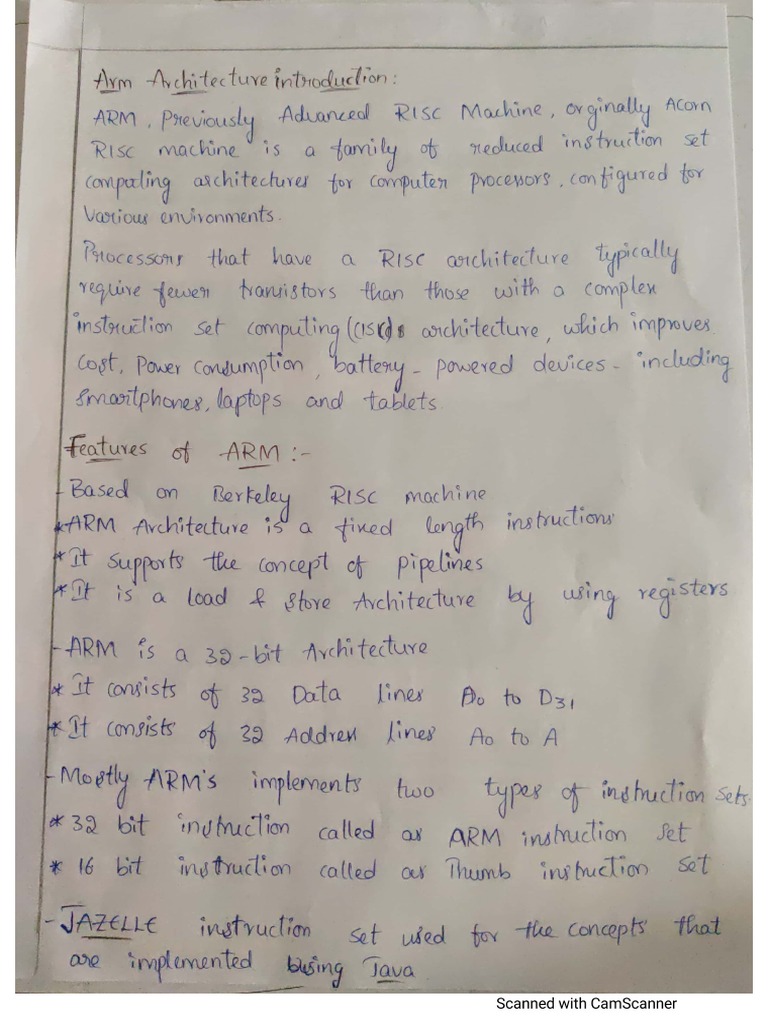 Arm Architecture introduction:
ARM, Previously Advanced RISC Machine, orginally Acorn
RISC machine is a family of reduced instruction set
computing architectures for computer processors, configured for
various environments.
Processors that have a RISC architecture typically
require fewer transistors than those with a complex
instruction set computing (CISC) architecture, which improves
cost, Power consumption, battery - powered devices - including
smartphones, laptops and tablets.
Features of ARM :-
- Based on Berkeley RISC machine
* ARM Architecture is a fixed length instructions
* It supports the concept of pipelines
* It is a load & store Architecture by using registers
- ARM is a 32-bit Architecture
* It consists of 32 Data lines D0 to D31
* It consists of 32 Address lines A0 to A
- Mostly ARM's implements two types of instruction sets.
* 32 bit instruction called as ARM instruction set
* 16 bit instruction called as Thumb instruction set
- JAZELLE instruction set used for the concepts that
are implemented using Java
Scanned with CamScanner